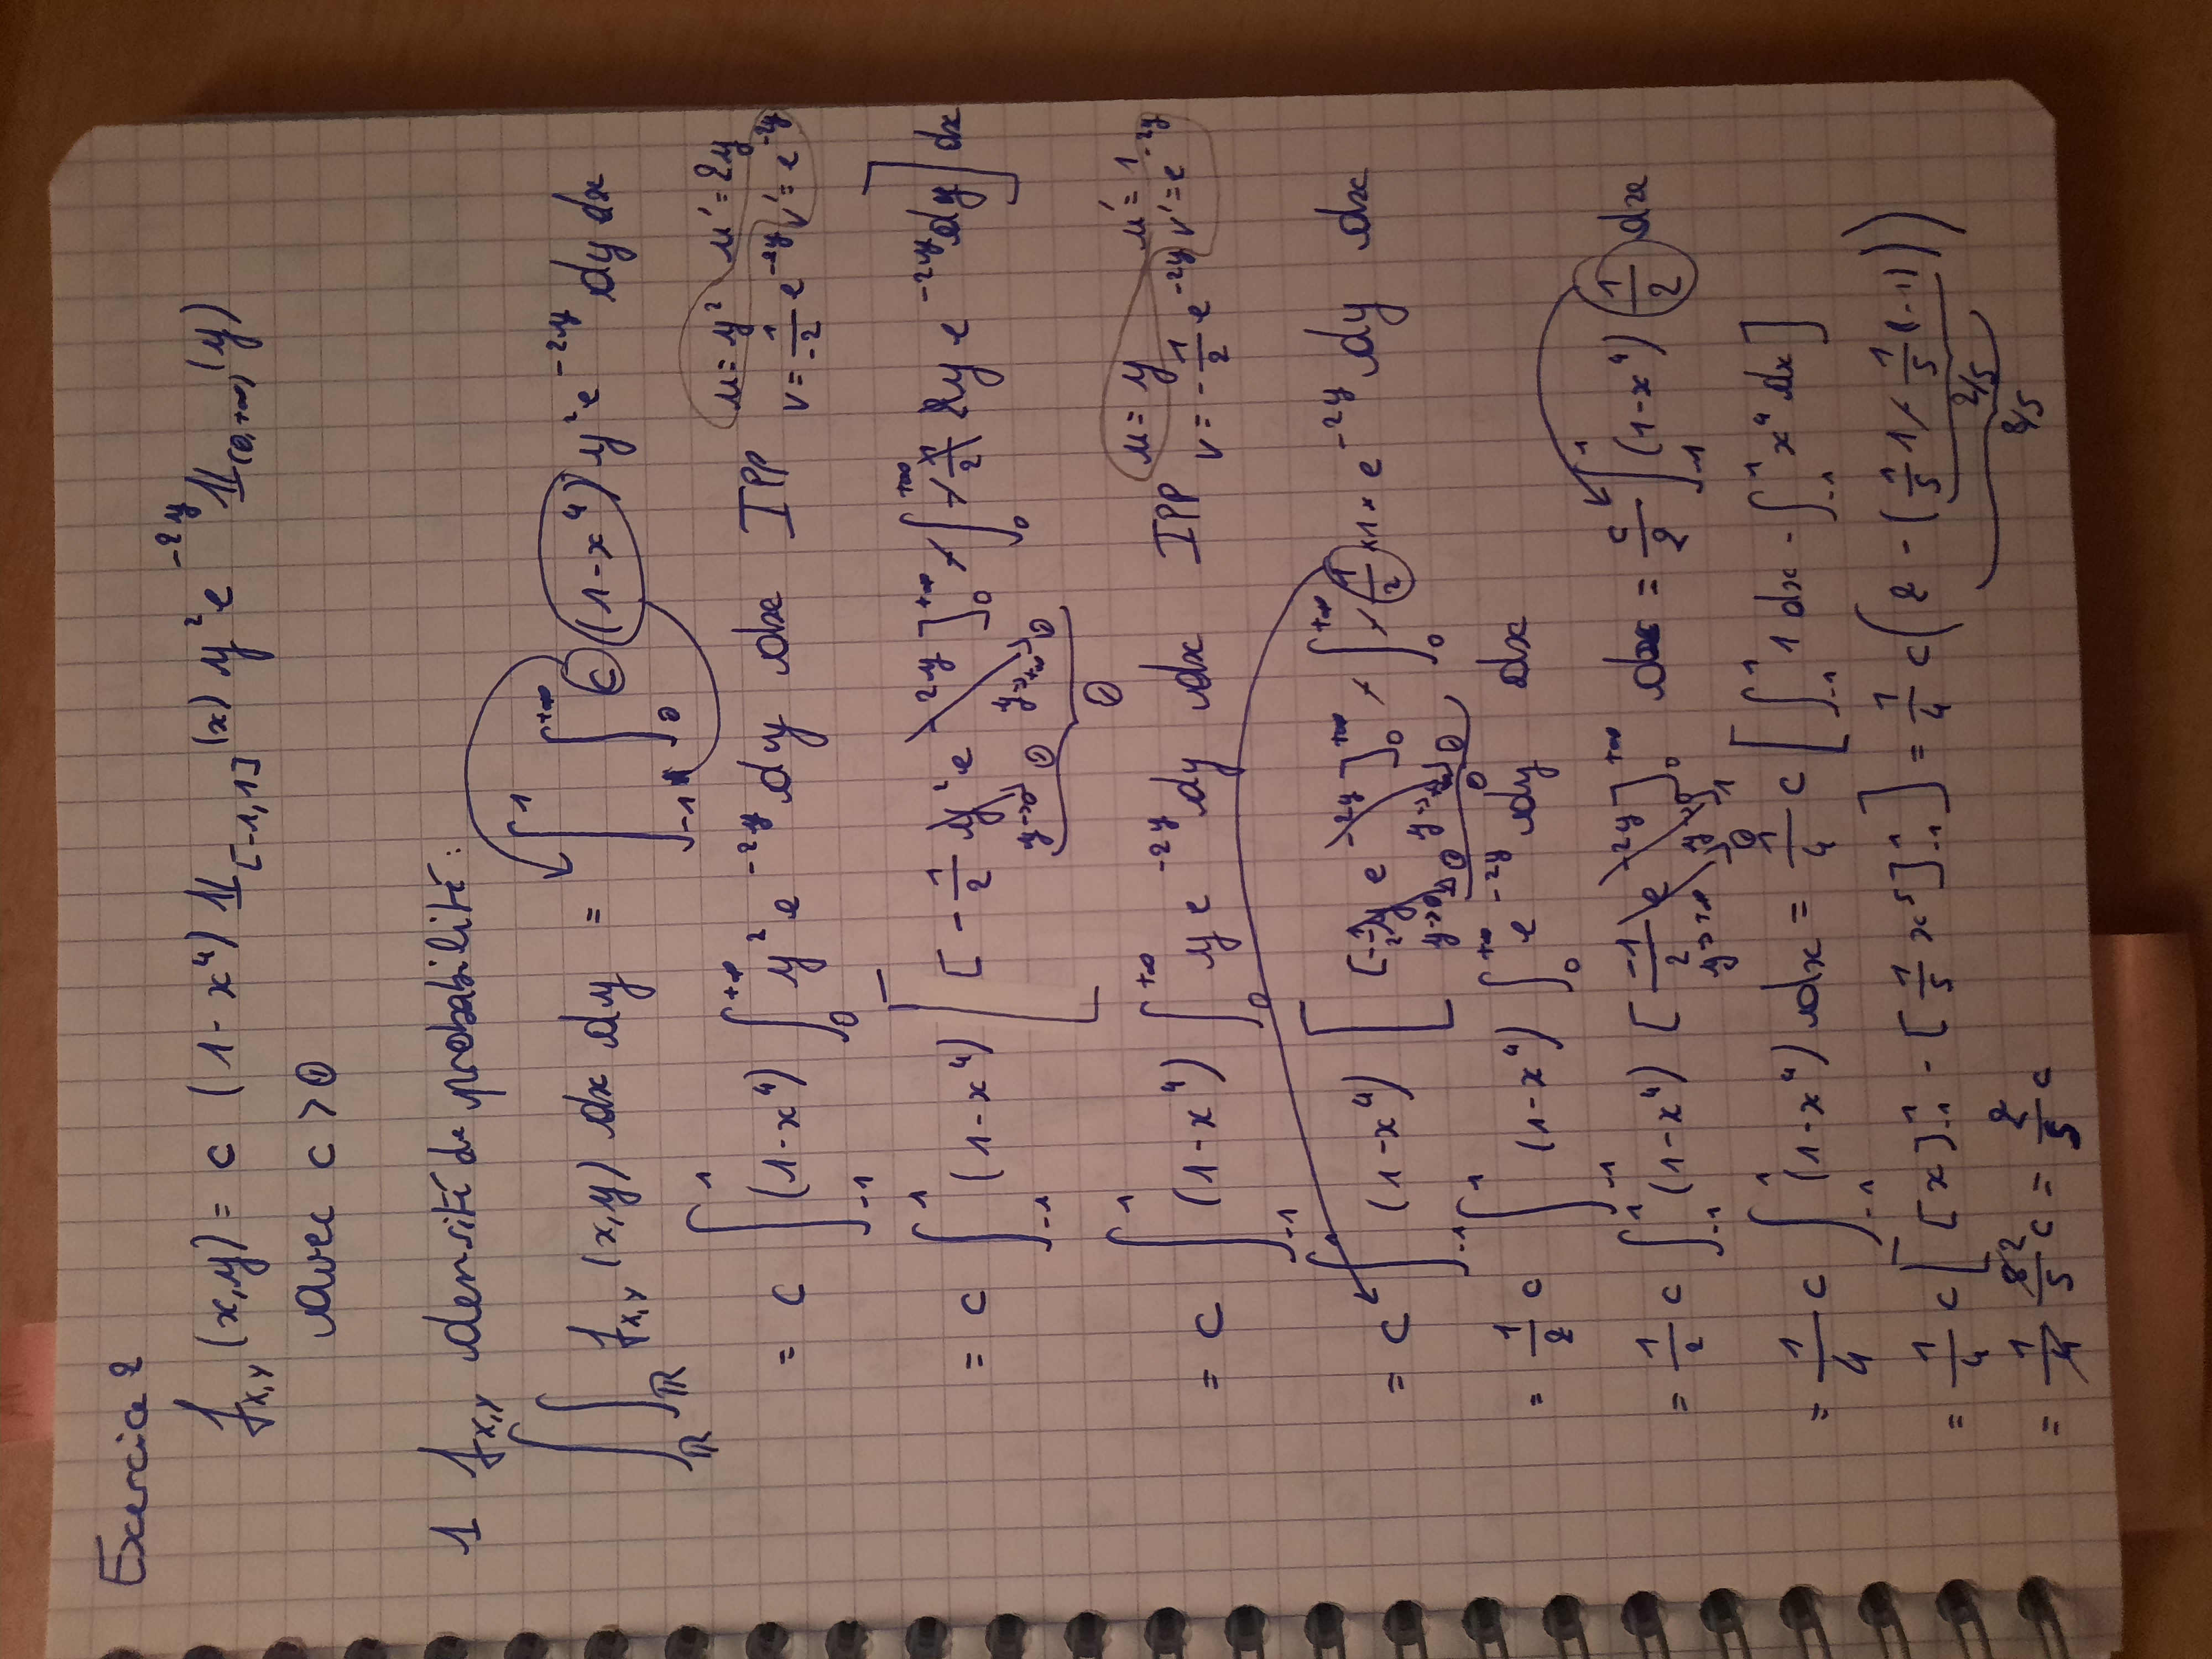 Exercice 2
f_{X,Y}(x,y) = c (1-x⁴) 𝟙_{[-1,1]}(x) y² e^{-2y} 𝟙_{(0,+∞)}(y)
avec c > 0
1 f_{X,Y} densité de probabilité :
∫_ℝ ∫_ℝ f_{X,Y}(x,y) dx dy = ∫_{-1}^{1} ∫_0^{+∞} c (1-x⁴) y² e^{-2y} dy dx
= c ∫_{-1}^{1} (1-x⁴) ∫_0^{+∞} y² e^{-2y} dy dx IPP u = y² u' = 2y
v = 1/-2 e^{-2y} v' = e^{-2y}
= c ∫_{-1}^{1} (1-x⁴) [ [ -1/2 y² e^{-2y} ]_0^{+∞} - ∫_0^{+∞} - 1/2 2y e^{-2y} dy ] dx
y→0 0 y→+∞ 0
0
= c ∫_{-1}^{1} (1-x⁴) ∫_0^{+∞} y e^{-2y} dy dx IPP u = y u' = 1
v = -1/2 e^{-2y} v' = e^{-2y}
= c ∫_{-1}^{1} (1-x⁴) [ [ -1/2 y e^{-2y} ]_0^{+∞} - ∫_0^{+∞} - 1/2 × 1 × e^{-2y} dy dx
y→0 0 y→+∞ 0
0
= 1/2 c ∫_{-1}^{1} (1-x⁴) ∫_0^{+∞} e^{-2y} dy dx
= 1/2 c ∫_{-1}^{1} (1-x⁴) [ -1/2 e^{-2y} ]_0^{+∞} dx = c/2 ∫_{-1}^{1} (1-x⁴) 1/2 dx
y→+∞ 0 y→0 1
= 1/4 c ∫_{-1}^{1} (1-x⁴) dx = 1/4 c [ ∫_{-1}^{1} 1 dx - ∫_{-1}^{1} x⁴ dx ]
= 1/4 c [ [x]_{-1}^{1} - [1/5 x⁵]_{-1}^{1} ] = 1/4 c (2 - (1/5 1 - 1/5 (-1)))
2/5
8/5
= 1/4 8/5 2 c = 2/5 c